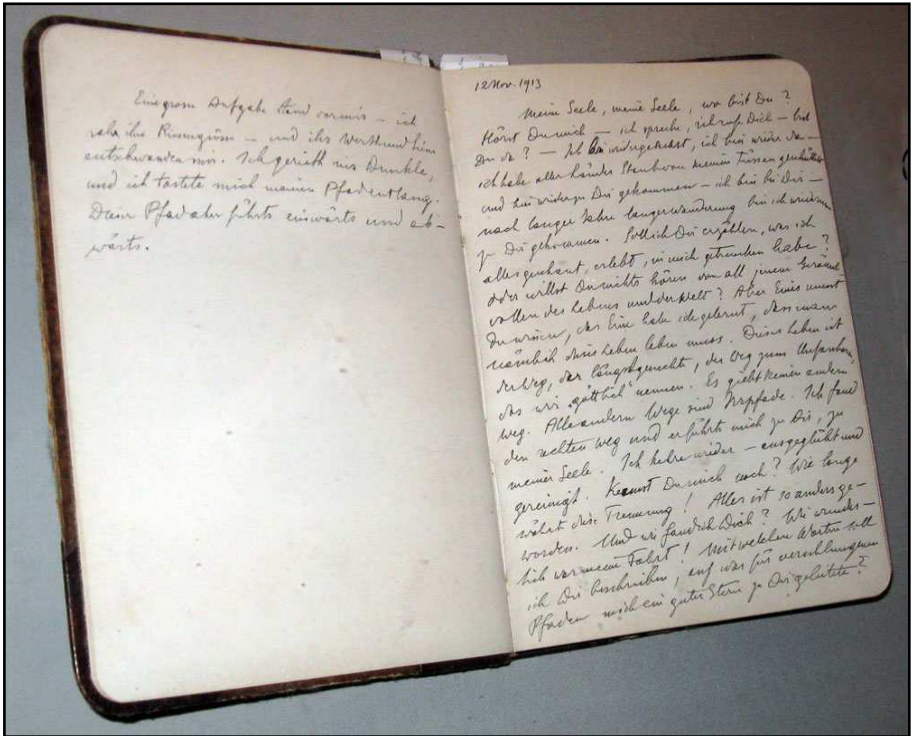 Eine grosse Aufgabe stand vor mir – ich
sah ihre Riesengrösse – und ihr Werth und Sinn
entschwanden mir. Ich gerieth ins Dunkle,
und ich tastete mich meinen Pfad entlang.
Dieser Pfad aber führte einwärts und ab-
wärts.
12 Nov. 1913
Meine Seele, meine Seele, wo bist Du?
Hörst Du mich – ich spreche, ich rufe Dich – bist
Du da? – Ich bin wiedergekehrt, ich bin wieder da –
ich habe aller Länder Staub von meinen Füssen geschüttelt
und bin wieder zu Dir gekommen – ich bin bei Dir –
nach langer Jahre langer Wanderung bin ich wieder
zu Dir gekommen. Soll ich Dir erzählen, was ich
alles geschaut, erlebt, in mich getrunken habe?
oder willst Du nichts hören von all jenem Geräusch-
vollen des Lebens und der Welt? Aber Eines musst
Du wissen, das Eine habe ich gelernt, dass man
nämlich dieses Leben leben muss. Dieses Leben ist
der Weg, der längstgesuchte, der Weg zum Unfassbaren,
das wir „göttlich" nennen. Es giebt keinen andern
Weg. Alle andern Wege sind Irrpfade. Ich fand
den rechten Weg und er führte mich zu Dir, zu
meiner Seele. Ich kehre wieder – ausgeglüht und
gereinigt. Kennst Du mich noch? Wie lange
währte diese Trennung! Alles ist so anders ge-
worden. Und wie fand ich Dich? Wie wunder-
lich war meine Fahrt! Mit welchen Worten soll
ich Dir beschreiben, auf was für verschlungenen
Pfaden mich ein guter Stern zu Dir geleitete?